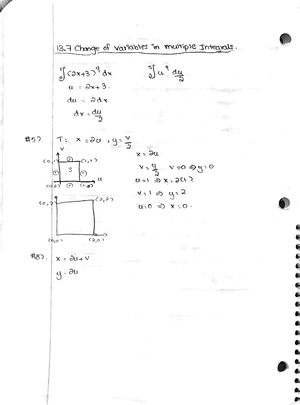 13.7 Change of variables in multiple Integrals.
∫(2x+3)⁹ dx ∫u⁹ du/2
u = 2x+3.
du = 2dx
dx = du/2
T: x = 2u, y = v/2
x = 2u
v = y/2 v=0 ⇒ y=0
u=1 ⇒ x=2(1)
v=1 ⇒ y=2
u=0 ⇒ x=0.
v
(1,1)
3
u
(2,2)
(0,0) (2,0)
x = 2u+v
y = 2u